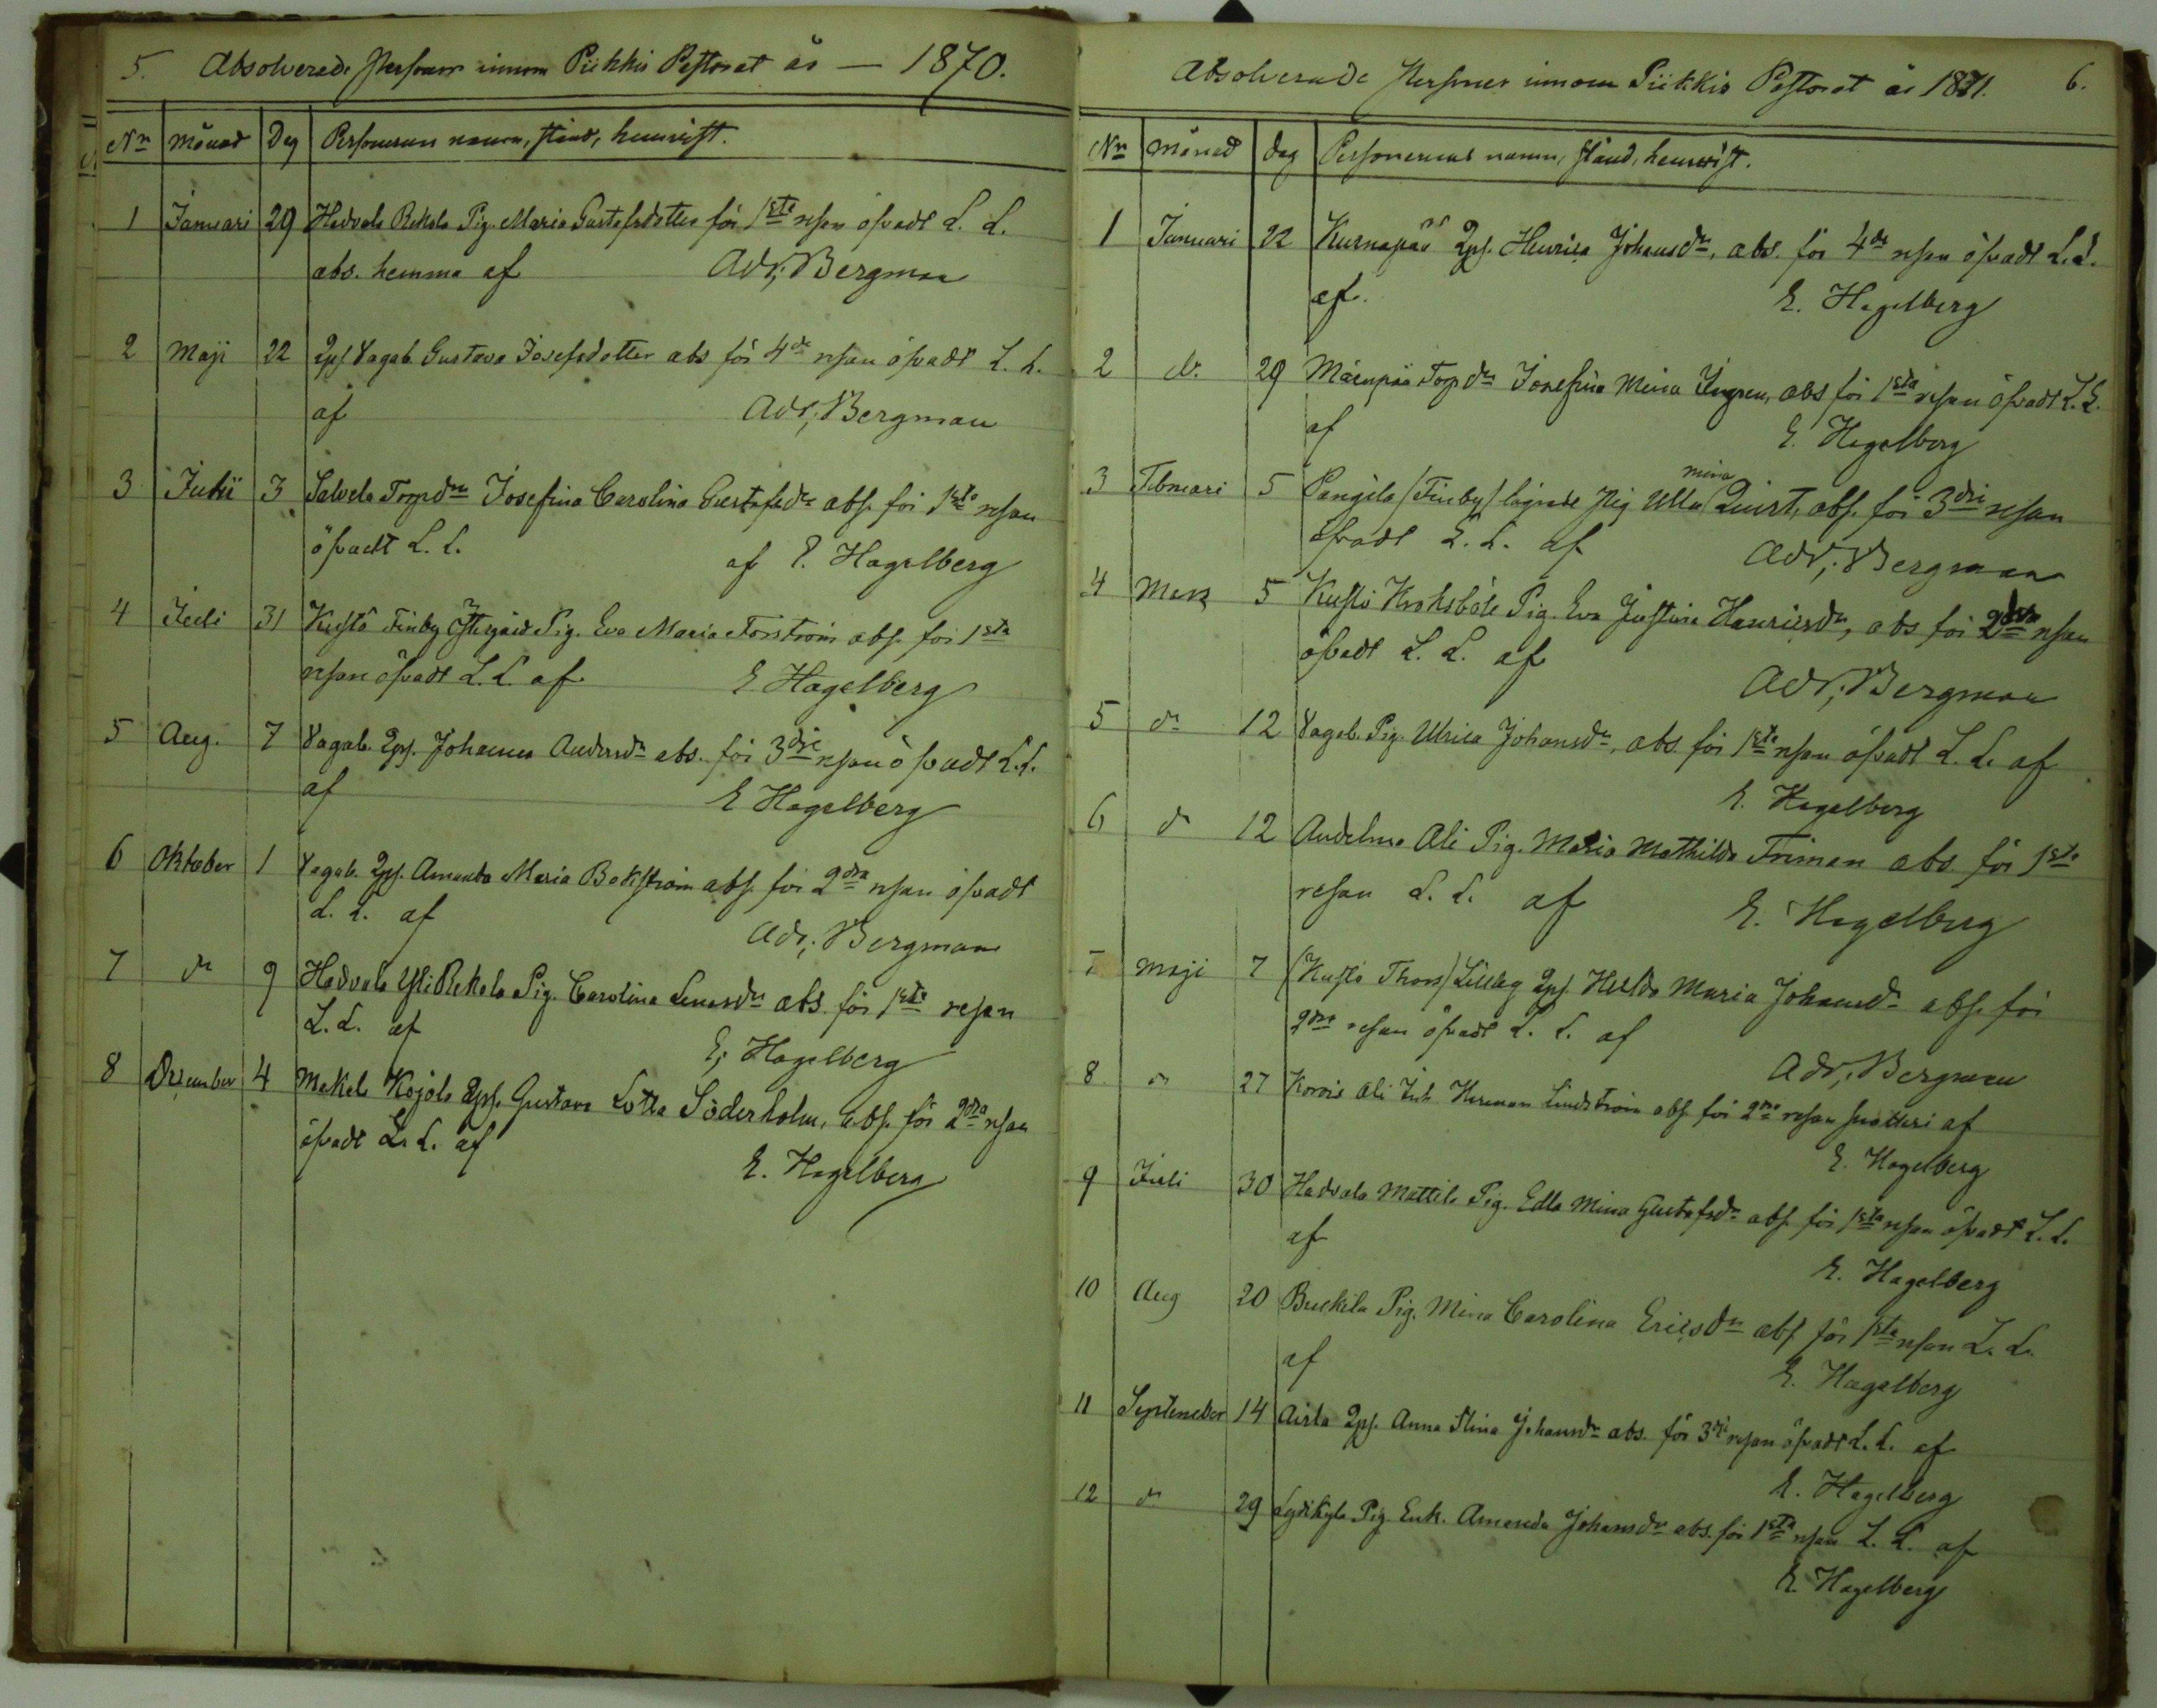 5. Absolverade Personer innom Piikkis Pastorat år — 1870.
Nr Månad Dag Personernas namn, stånd, hemvist.
1 Januari 29 Hadvala Rekola Pig. Maria Gustafsdotter för 1sta resan öfvadt L. L.
abs. hemma af Adr; Bergman
2 Maji 22 Qps Vagab. Gustava Josefsdotter abs för 4de resan öfvadt L. L.
af Adr; Bergman
3 Julii 3 Salvela Torpdr Josefina Carolina Gustafsdr abs. för 1sta resan
öfvadt L. L. af E. Hagelberg
4 Juli 31 Kustö Finby Östergård Pig. Eva Maria Forström abs. för 1sta
resan öfvadt L. L. af E. Hagelberg
5 Aug. 7 Vagab. Qps. Johanna Andersdr abs. för 3dje resan öfvadt L. L.
af E Hagelberg
6 Oktober 1 Vagab. Qps. Amanda Maria Bokström abs. för 2dra resan öfvadt
L. L. af Adr; Bergman
7 dr 9 Hadvala Yli Rekola Pig. Carolina Lenasdr abs. för 1sta resan
L. L. af E; Hagelberg
8 December 4 Makela Kojola Qps. Gustava Lotta Söderholm, abs. för 2dra resan
öfvadt L. L. af E. Hagelberg
Absolverade Personer innom Piikkis Pastorat år 1871. 6.
Nr Månad dag Personernas namn, stånd, hemvist.
1 Januari 22 Kurnapää Qps. Henrica Johansdr, abs. för 4de resan öfvadt L. L.
af. E. Hagelberg
2 dr. 29 Mäenpää Torpdr Josefina Mina abs för 1sta resan öfvadt L. L.
af E. Hagelberg
mina
3 Februari 5 (Finby) Pig Ulla Quist, abs. för 3dje resan
öfvadt L. L. af Adr; Bergman
4 Mars 5 Kustö Kroksböle Pig. Eva Justina Henricsdr, abs för 2dra resan
öfvadt L. L. af Adr; Bergman
5 dr 12 Vagab. Pig. Ulrica Johansdr, abs. för 1sta resan öfvadt L. L. af
E. Hagelberg
6 dr 12 Andelma Ali Pig. Maria Mathilda Friman abs. för 1sta
resan L. L. af E. Hagelberg
7 Maji 7 (Kustö Thors) Qps. Hulda Maria Johansdr abs. för
2dra resan öfvadt L. L. af Adr; Bergman
8 dr 27 Korvis Ali Inh Herman Lindström abs. för 2dra resan snatteri af
E. Hagelberg
9 Juli 30 Hadvala Mattila Pig. Edla Mina Gustafsdr abs. för 1sta resan öfvadt L. L.
af E. Hagelberg
10 Aug 20 Buskila Pig. Mina Carolina Ericsdr abs för 1sta resan L. L.
af E. Hagelberg
11 September 14 Airla Qps. Anna Stina Johansdr abs. för 3dje resan öfvadt L. L. af
E. Hagelberg
12 dr 29 Lydikylä Pig. Enk. Amanda Johansdr abs. för 1sta resan L. L. af
E. Hagelberg